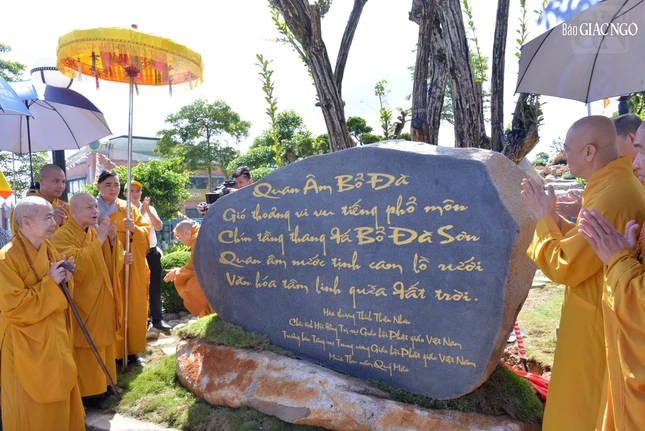 Báo GIÁC NGỘ
Quan Âm Bồ Đà
Gió thoảng vi vu tiếng phổ môn
Chín tầng thang đá Bồ Đà Sơn
Quan âm nước tịnh cam lồ rưới
Văn hóa tâm linh quữa đất trời.
Hòa thượng Thích Thiện Nhơn
Chủ tịch Hội đồng Trị sự Giáo hội Phật giáo Việt Nam
Trưởng ban Tăng sự Trung ương Giáo hội Phật giáo Việt Nam
Mùa Thu năm Quý Mão